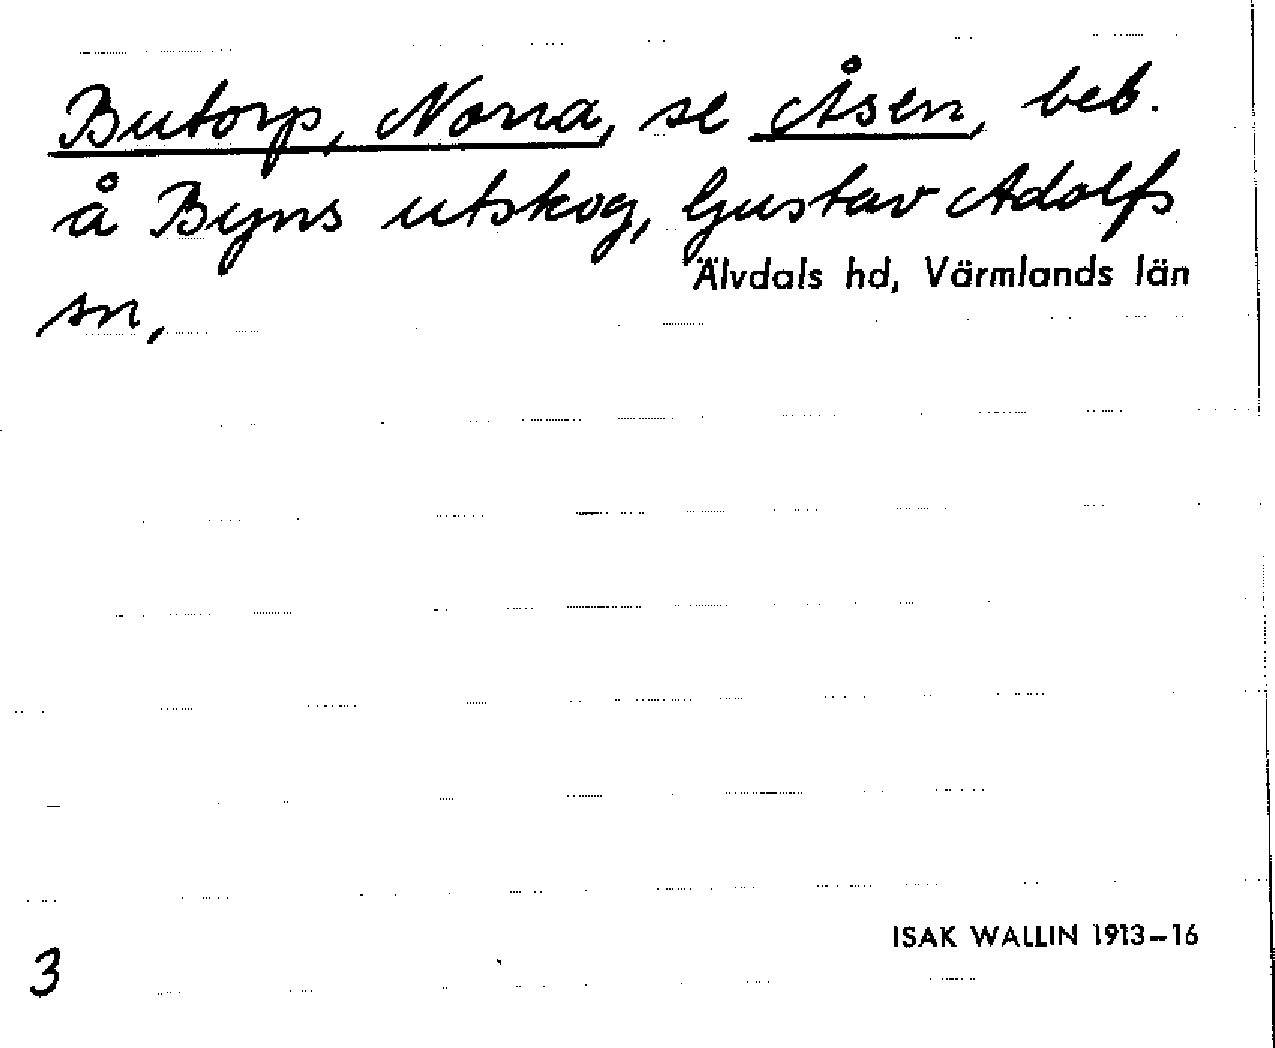 Butorp, Norra, se Åsen, beb.
å Byns utskog, Gustav Adolfs
Älvdals hd, Värmlands län
sn,
ISAK WALLIN 1913-16
3